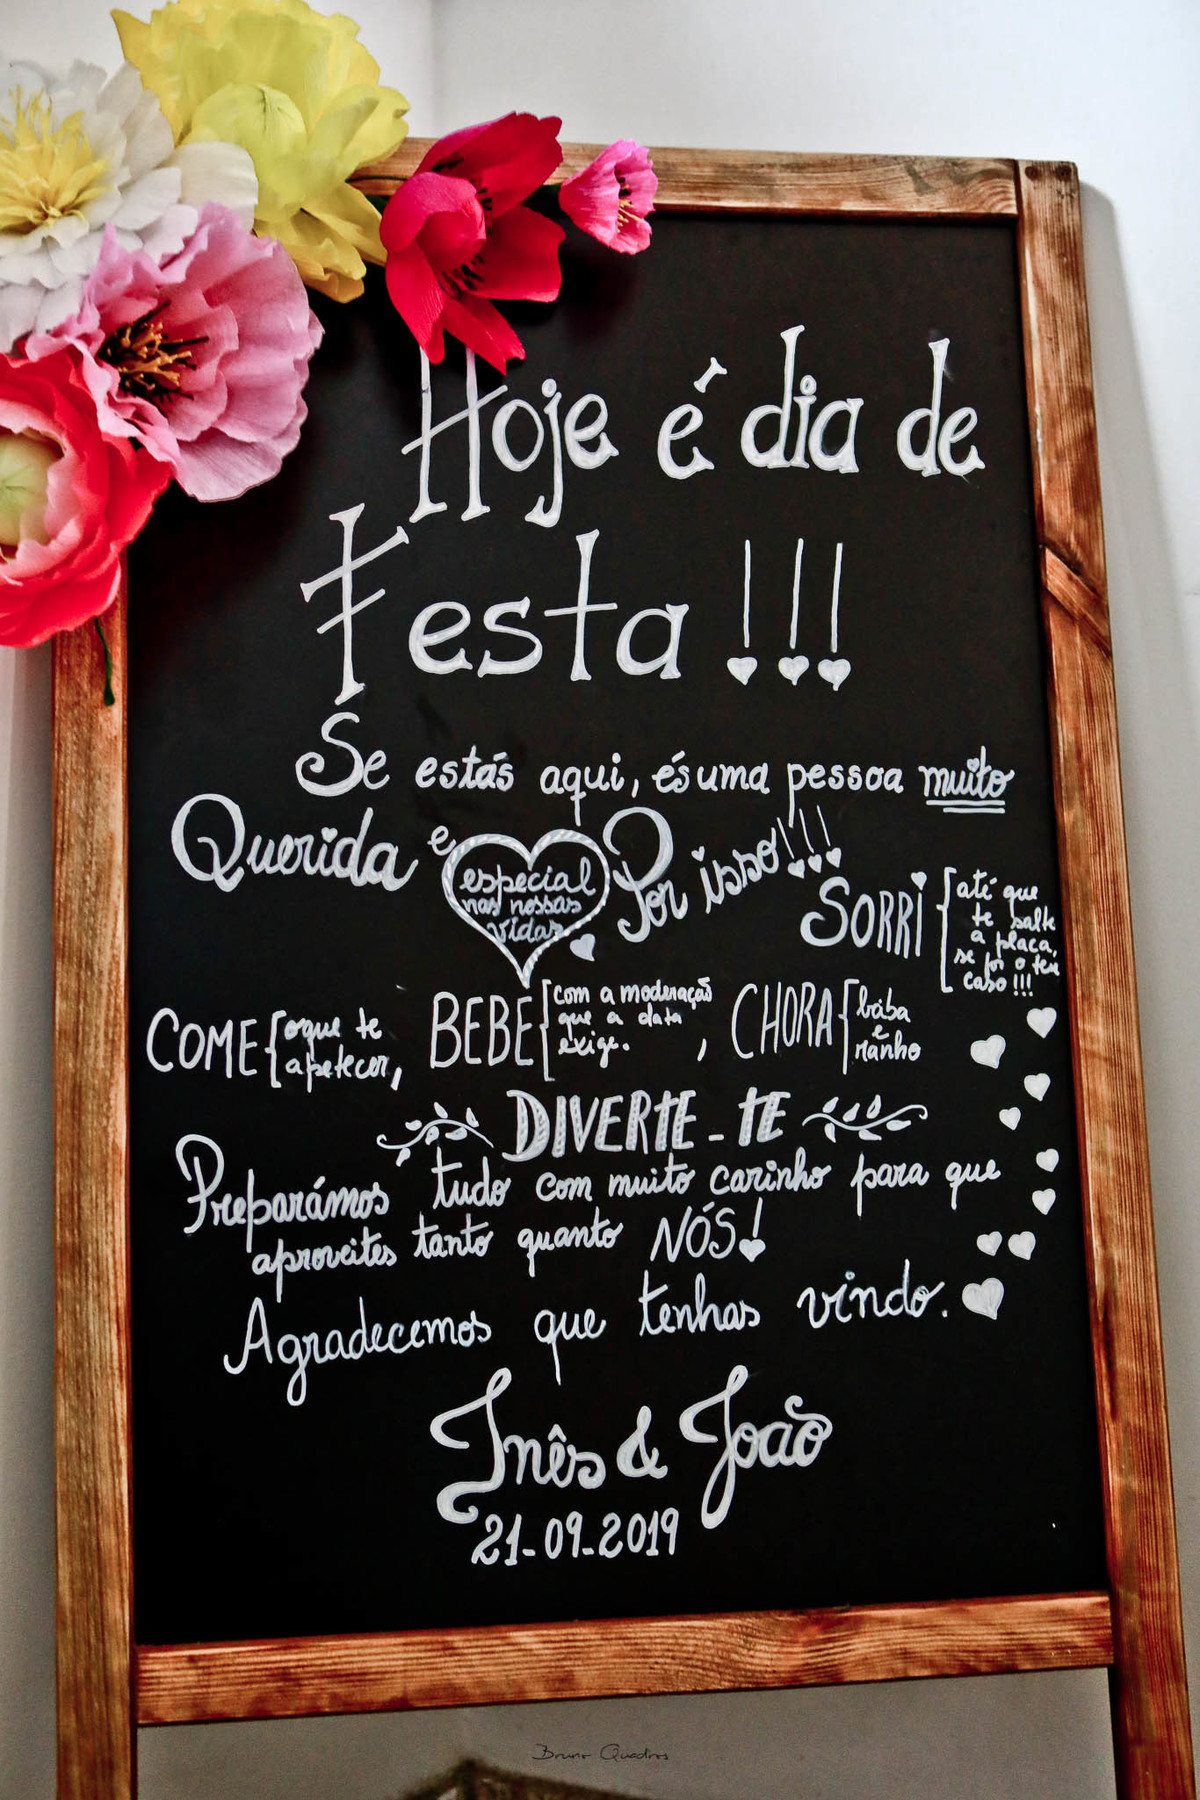 Hoje é dia de
Festa !!!
Se estás aqui, és uma pessoa muito
Querida e especial nas nossas vidas Por isso!!!
SORRI { até que te salte a placa, se for o teu caso!!!
COME { oque te apetecer, BEBE { com a moderação que a data exige. , CHORA { baba e ranho
DIVERTE-TE
Preparámos tudo com muito carinho para que
aproveites tanto quanto NÓS!
Agradecemos que tenhas vindo.
Inês & João
21-09-2019
Bruno Quadros